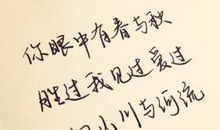 你眼中有春与秋
胜过我见过爱过
山川与河流